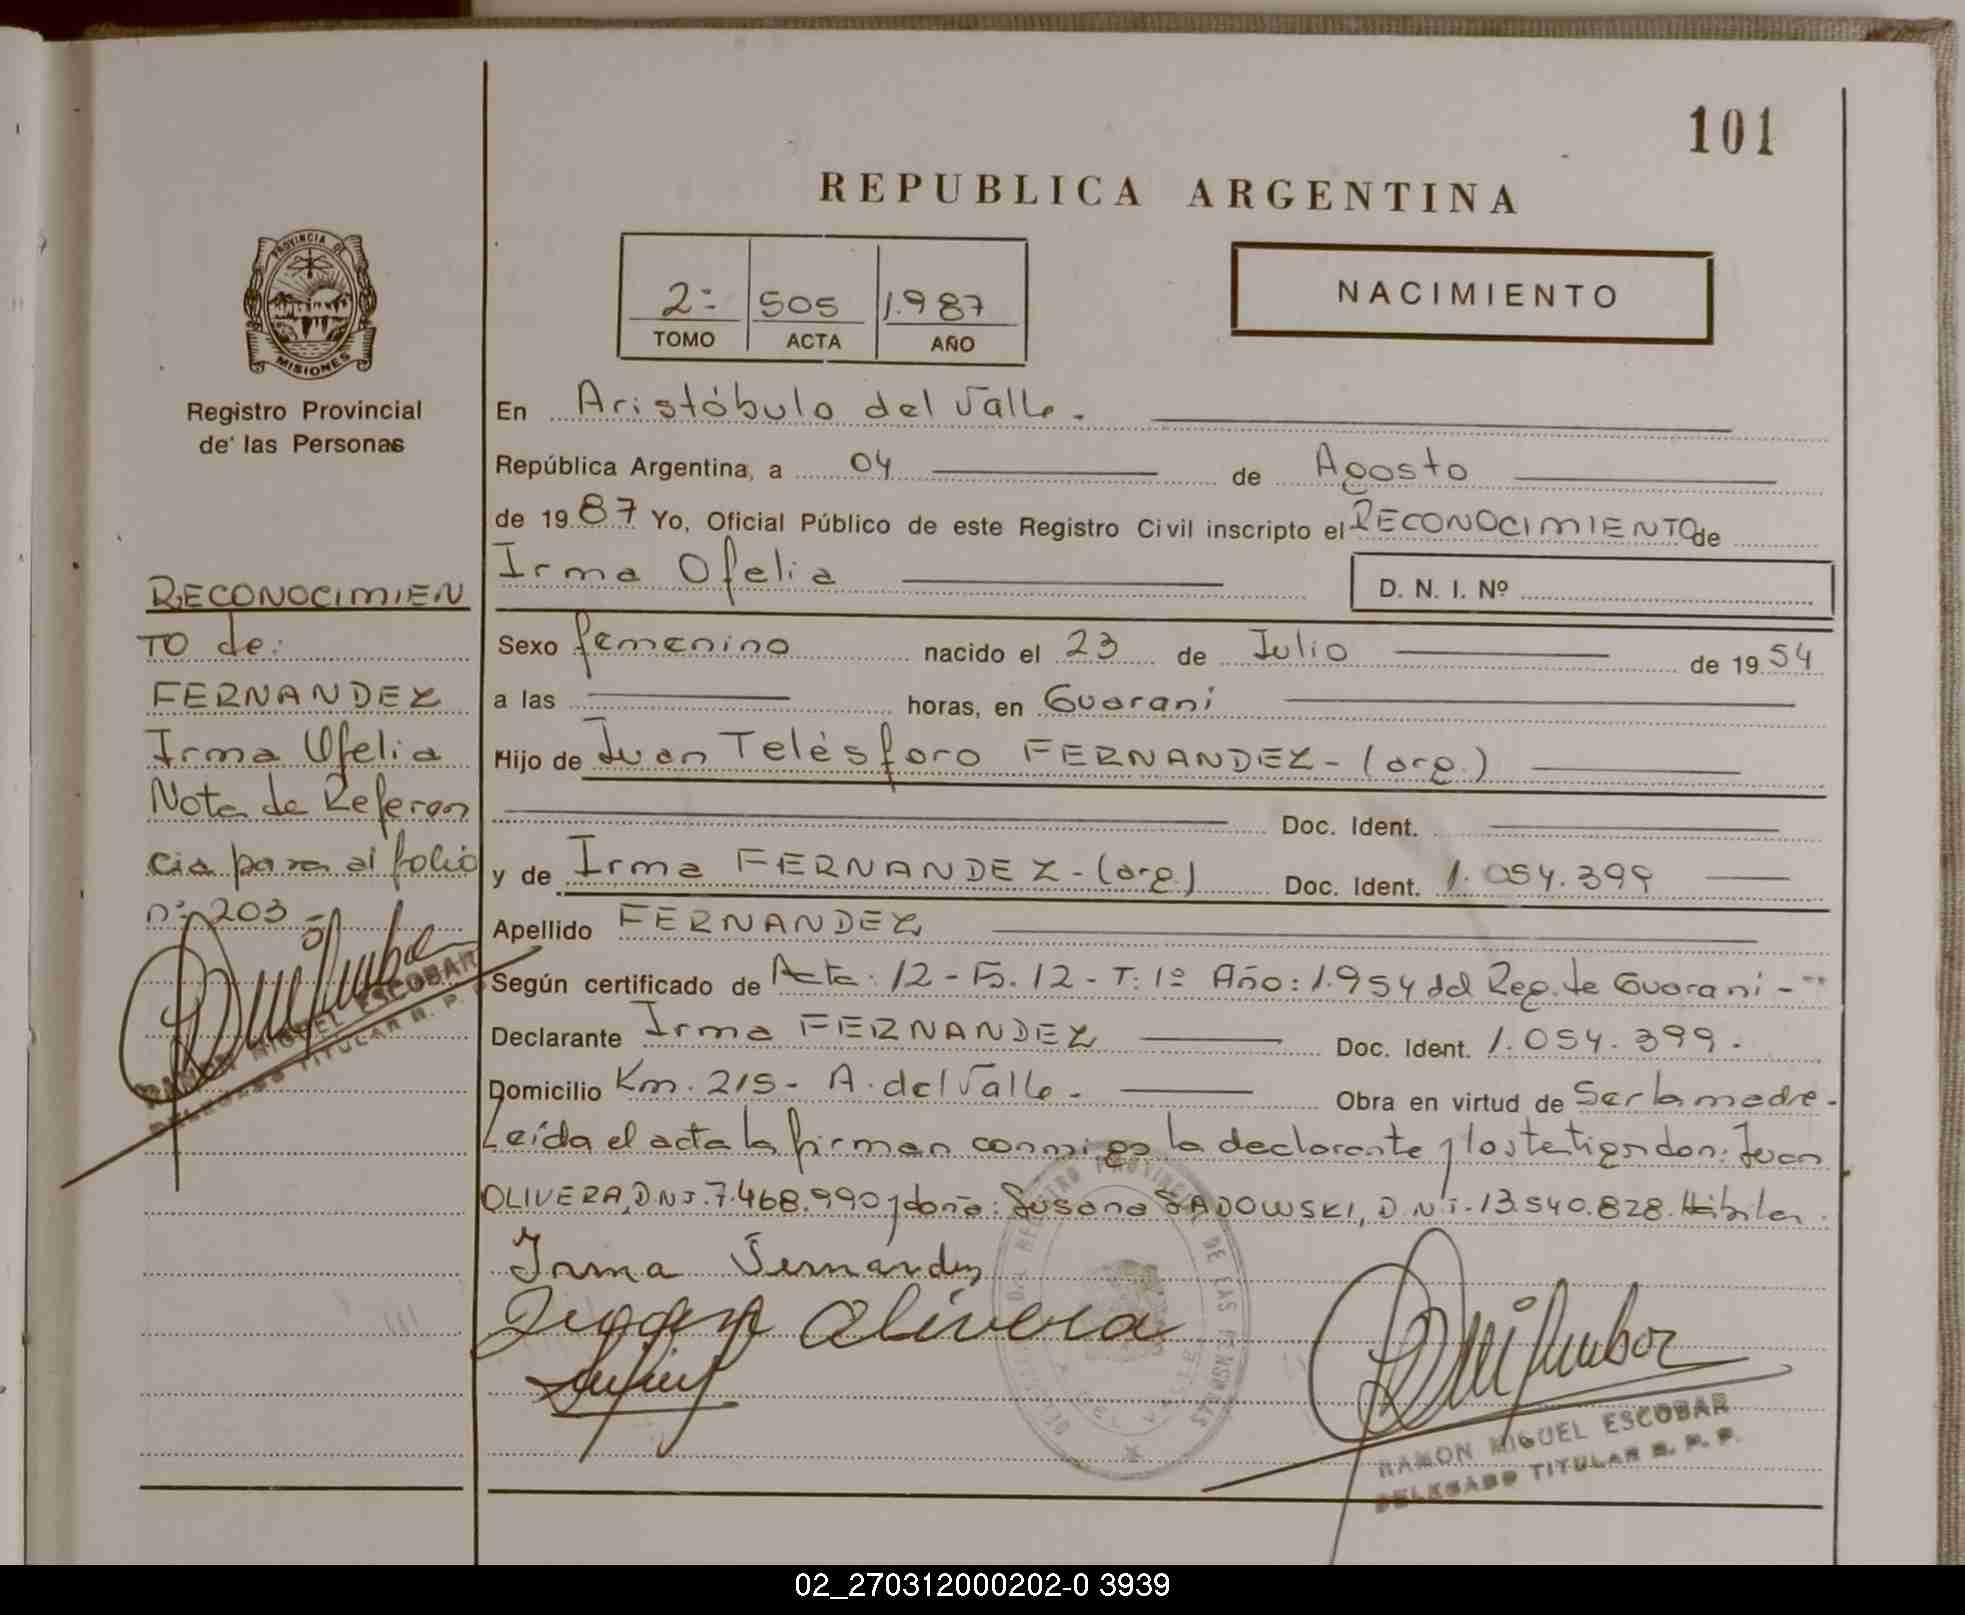 101
REPUBLICA ARGENTINA
PROVINCIA DE
MISIONES
Registro Provincial
de las Personas
2º 505 1.987
TOMO ACTA AÑO
NACIMIENTO
En Aristóbulo del Valle.
República Argentina, a 04 de Agosto
de 1987 Yo, Oficial Público de este Registro Civil inscripto el RECONOCIMIENTO de
Irma Ofelia D. N. I. Nº
Sexo femenino nacido el 23 de Julio de 1954
a las horas, en Guarani
Hijo de Juan Telésforo FERNANDEZ - (arg.)
Doc. Ident.
y de Irma FERNANDEZ - (arg) Doc. Ident. 1.054.399
Apellido FERNANDEZ
Según certificado de Acta: 12 - F. 12 - T: 1º Año: 1.954 del Reg. de Guarani -
Declarante Irma FERNANDEZ Doc. Ident. 1.054.399.
Domicilio Km. 215 - A. del Valle. Obra en virtud de Ser la madre.
Leída el acta la firman conmigo la declarante y los testigos don: Juan
OLIVERA, D.N.I. 7.468.990 y doña: Susana SADOWSKI, D.N.I. 13.540.828. Hábiles.
Irma Fernandez
Olivera
RAMON MIGUEL ESCOBAR
DELEGADO TITULAR R. P. P.
RECONOCIMIEN
TO de:
FERNANDEZ
Irma Ofelia
Nota de Referen
cia para al folio
nº 203 -
RAMON MIGUEL ESCOBAR
DELEGADO TITULAR R. P.
REGISTRO PROVINCIAL DE LAS PERSONAS
02_270312000202-0 3939